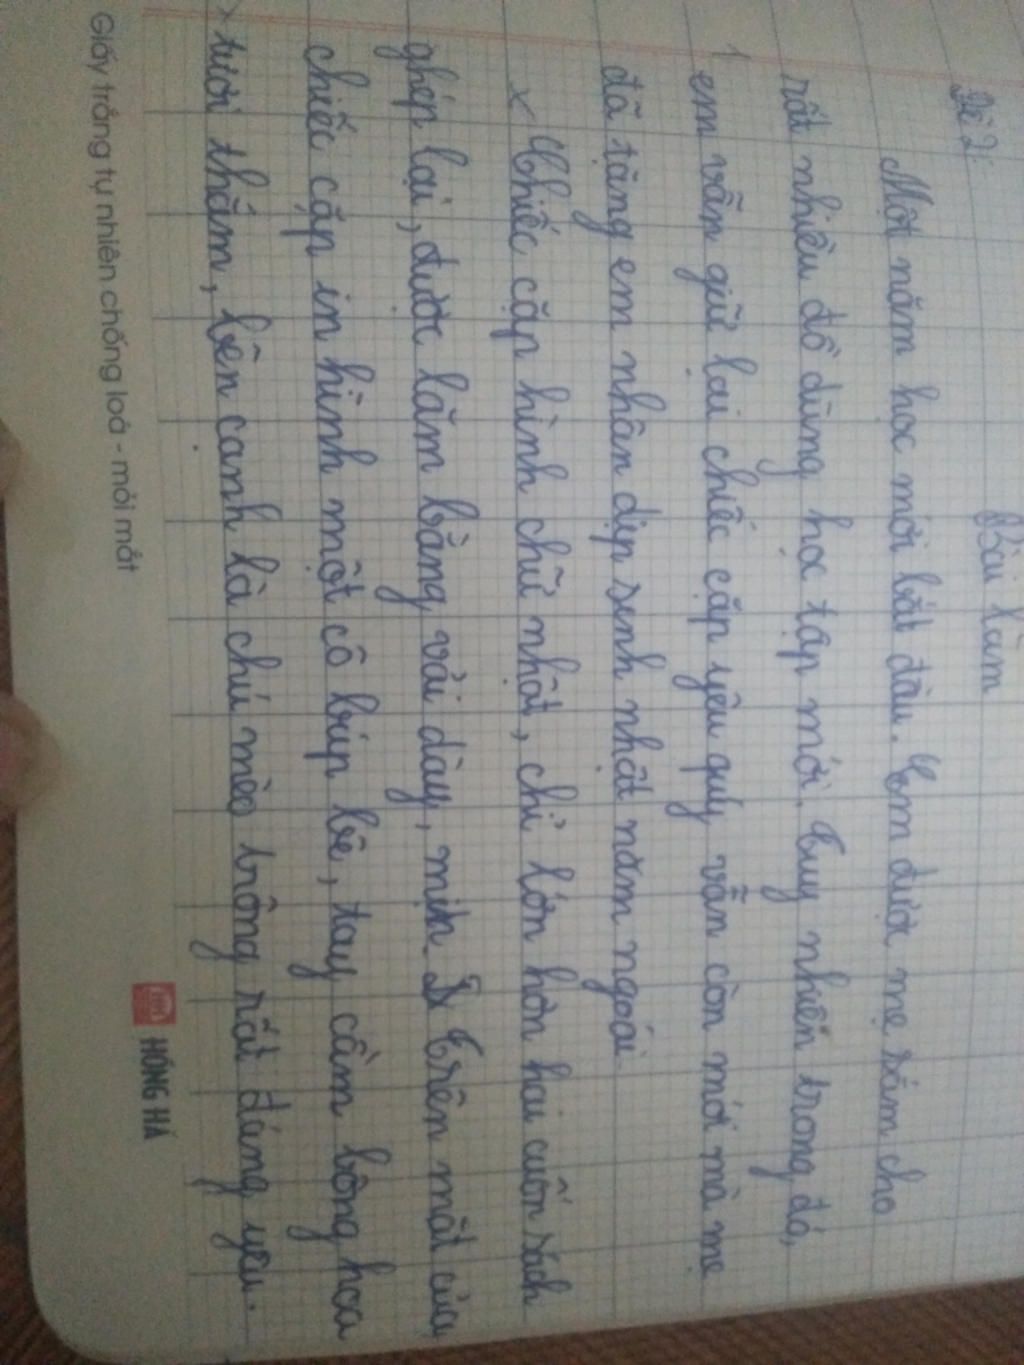 Đề 2:
Bài làm
Một năm học mới bắt đầu. Em được mẹ sắm cho
rất nhiều đồ dùng học tập mới. Tuy nhiên trong đó,
em vẫn giữ lại chiếc cặp yêu quý vẫn còn mới mà mẹ
đã tặng em nhân dịp sinh nhật năm ngoái.
Chiếc cặp hình chữ nhật, chỉ lớn hơn hai cuốn sách
ghép lại, được làm bằng vải dày, mịn. Trên mặt của
chiếc cặp in hình một cô búp bê, tay cầm bông hoa
tươi thắm, bên cạnh là chú mèo trông rất đáng yêu.
Giấy trắng tự nhiên chống loá - mỏi mắt
HỒNG HÀ